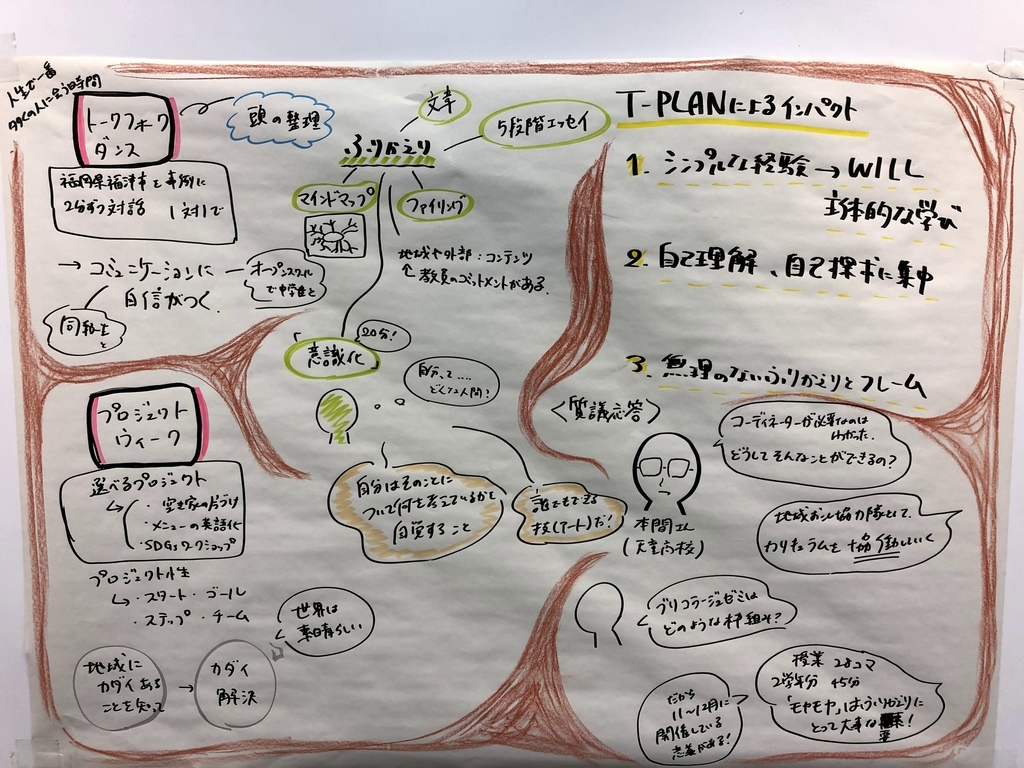 人生で一番
多くの人に会う時間
トークフォーク
ダンス
頭の整理
福岡県福津市を事例に
2分ずつ対話 1対1で
→ コミュニケーションに
自信がつく
オープンスクール
で中学生と
同級生
と
ふりかえり
文章
5段階エッセイ
マインドマップ
ファイリング
地域や外部:コンテンツ
↑教員のコミットメントがある
「意識化
20分!
自分って....
どんな人間?
自分はそのことに
ついて何を考えているかを
自覚すること
誰でもできる
技(アート)だ!
プロジェクト
ウィーク
選べるプロジェクト
・空き家の片づけ
・メニューの英語化
・SDGsワークショップ
プロジェクト性
・スタート・ゴール
・ステップ・チーム
世界は
素晴らしい
地域に
カダイある
ことを知って
→
カダイ
解決
T-PLANによるインパクト
1. シンプルな経験→WILL
主体的な学び
2. 自己理解、自己探求に集中
3. 無理のないふりかえりとフレーム
<質疑応答>
コーディネーターが必要なのは
わかった.
どうしてそんなことができるの?
本間さん
(天童高校)
地域おこし協力隊として、
カリキュラムを協働していく
ブリコラージュゼミは
どのような枠組み?
授業 28コマ
2学年分 45分
「モヤモヤ」はふりかえりに
とって大事な!
だから
11〜12月に
開催している
意義がある!